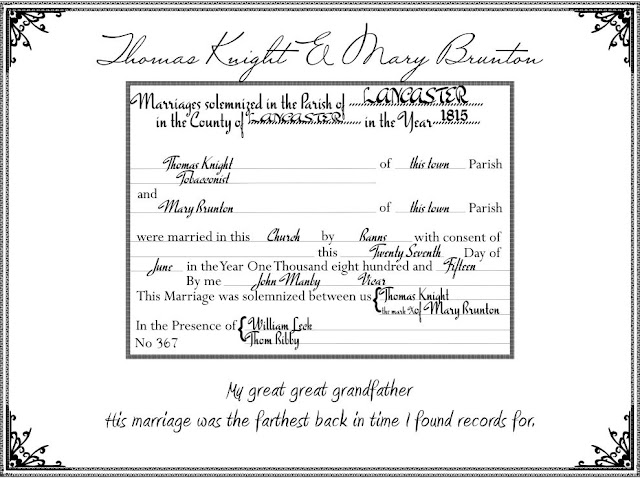 Thomas Knight & Mary Brunton
Marriages solemnized in the Parish of LANCASTER
in the County of LANCASTER in the Year 1815
Thomas Knight of this town Parish
Tobacconist
and
Mary Brunton of this town Parish
were married in this Church by Banns with consent of
this Twenty Seventh Day of
June in the Year One Thousand eight hundred and Fifteen
By me John Manby Vicar
This Marriage was solemnized between us { Thomas Knight
the mark X of Mary Brunton
In the Presence of { William Leck
Thom Ribby
No 367
My great great grandfather
His marriage was the farthest back in time I found records for.